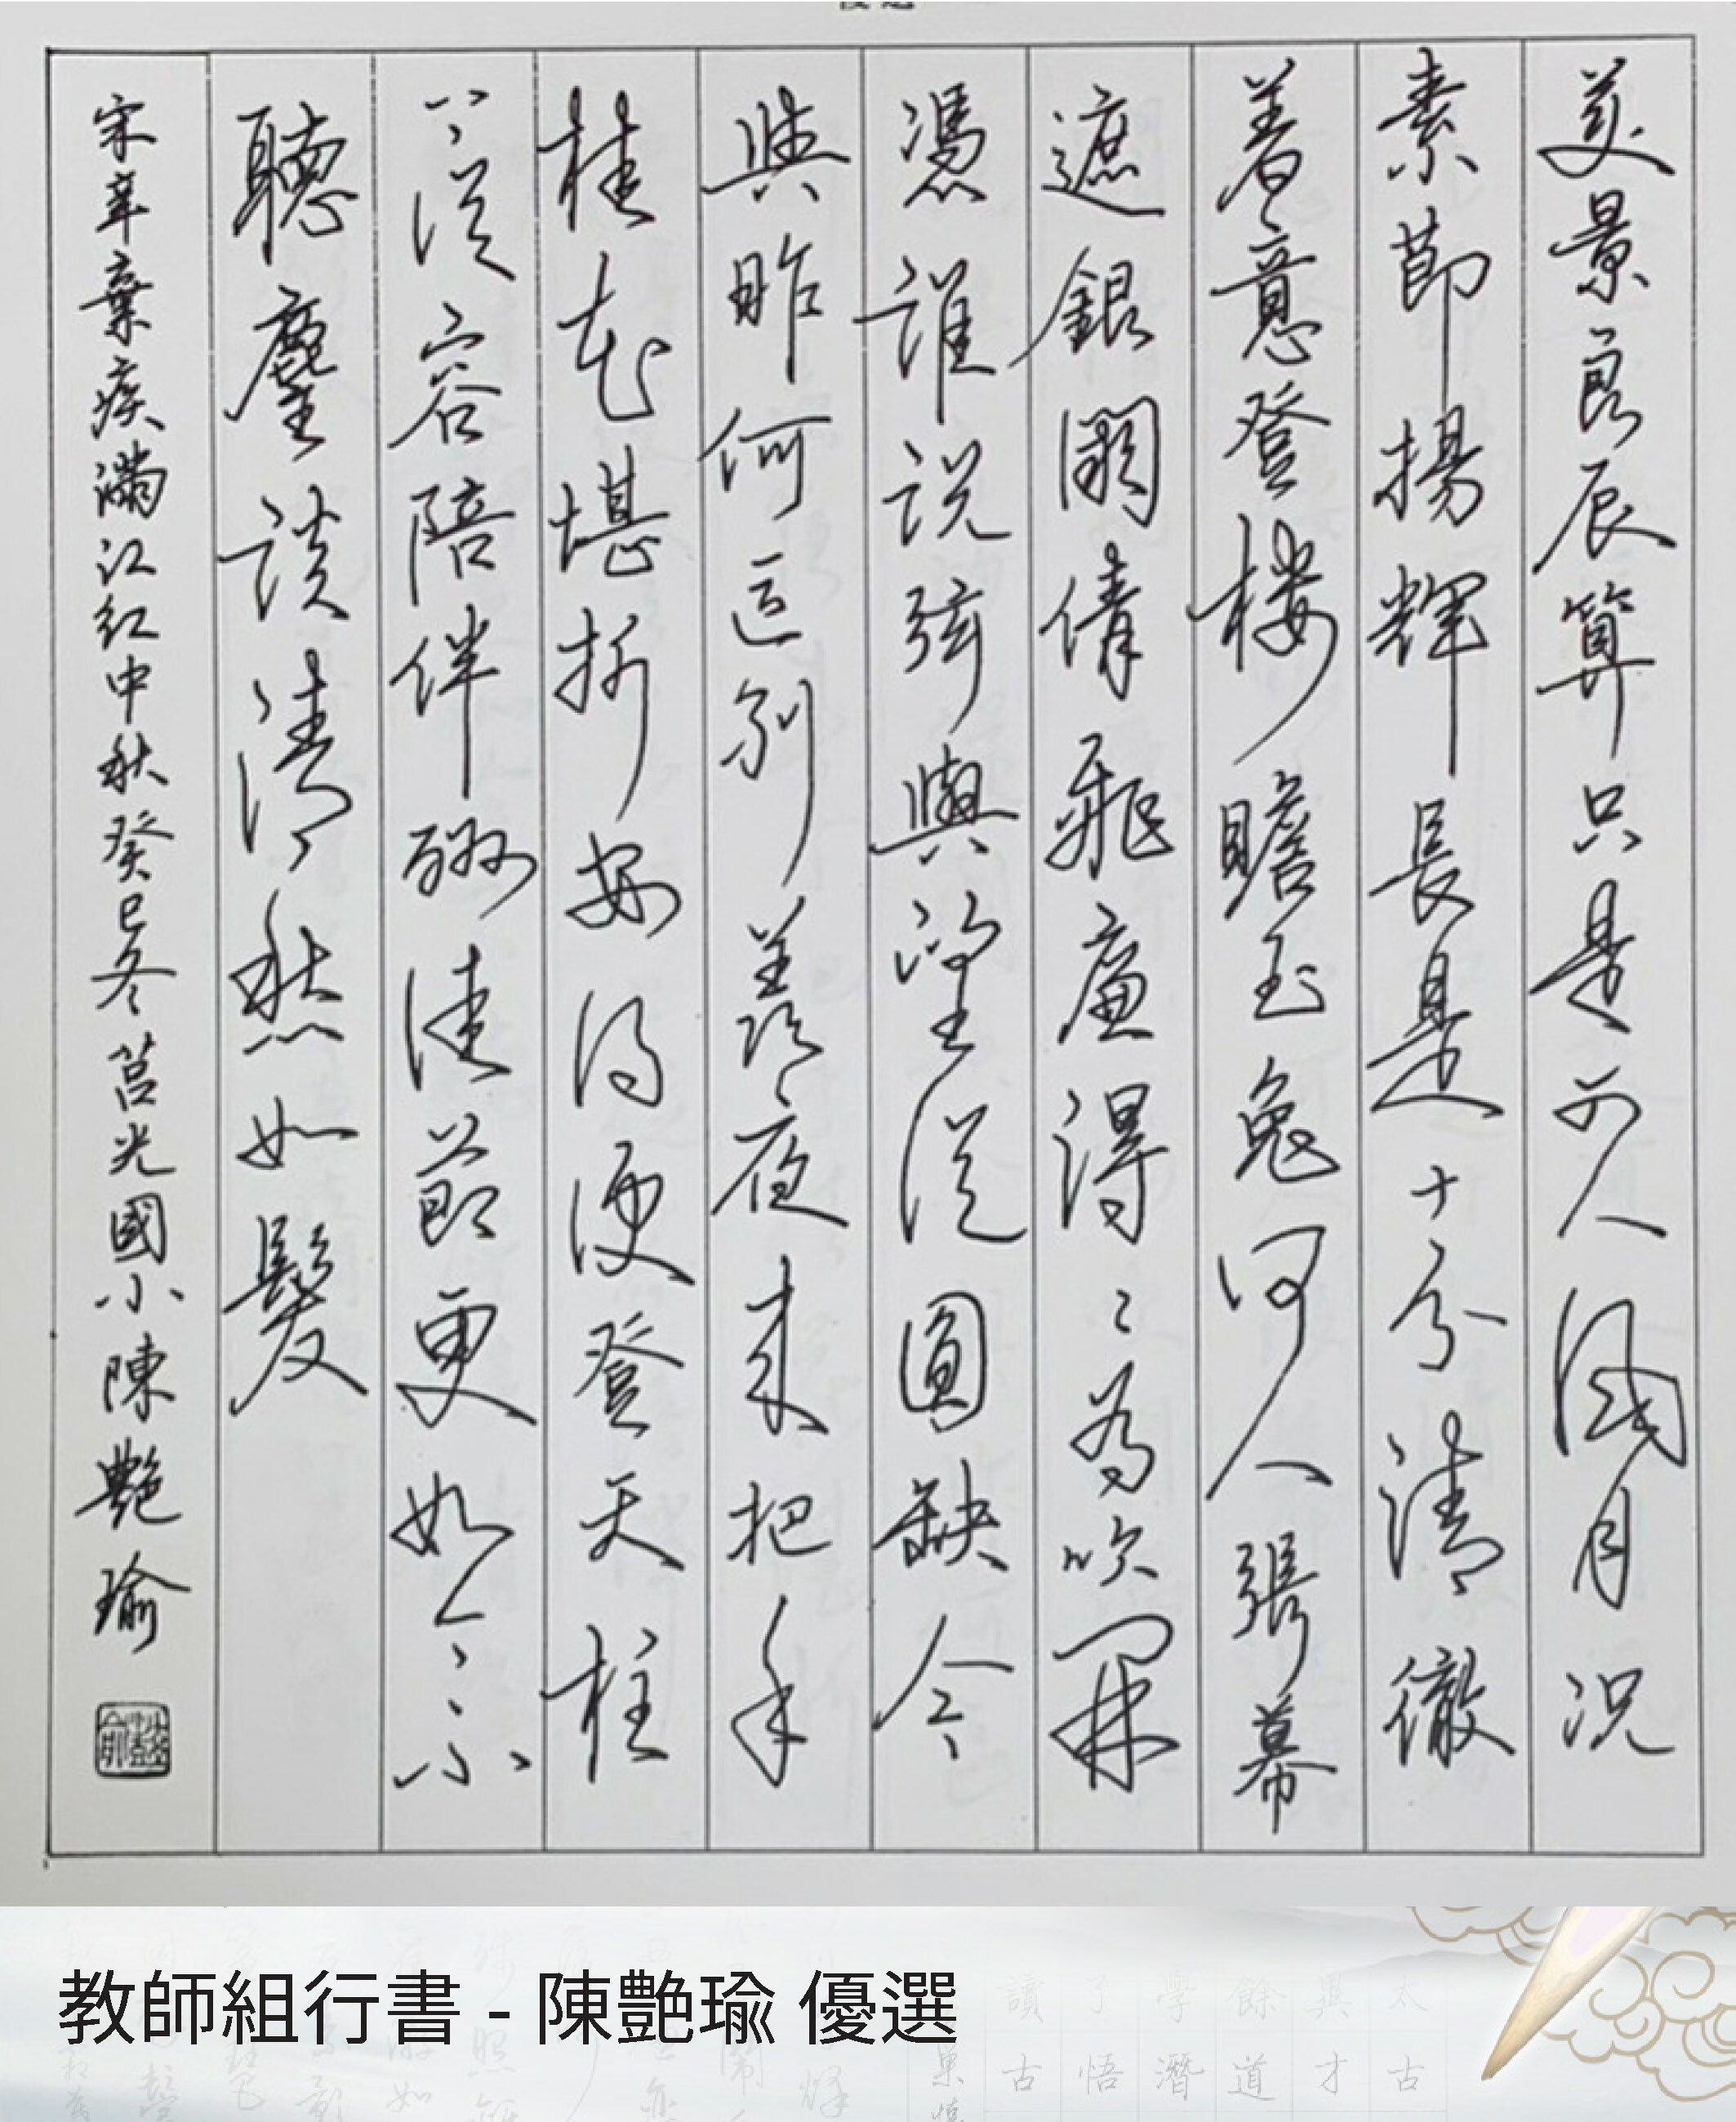 美景良辰算只是可人風月況
素節揚輝長是十分清徹
著意登樓瞻玉兔何人張幕
遮銀闕倩飛廉得得為吹開
憑誰說弦與望從圓缺今
與昨何區別羨夜來把手
桂花堪折安得便登天柱
上從容陪伴酬佳節更如今不
聽麈談清愁如髮
宋辛棄疾滿江紅中秋癸巳冬莒光國小陳艷瑜
教師組行書 - 陳艷瑜 優選